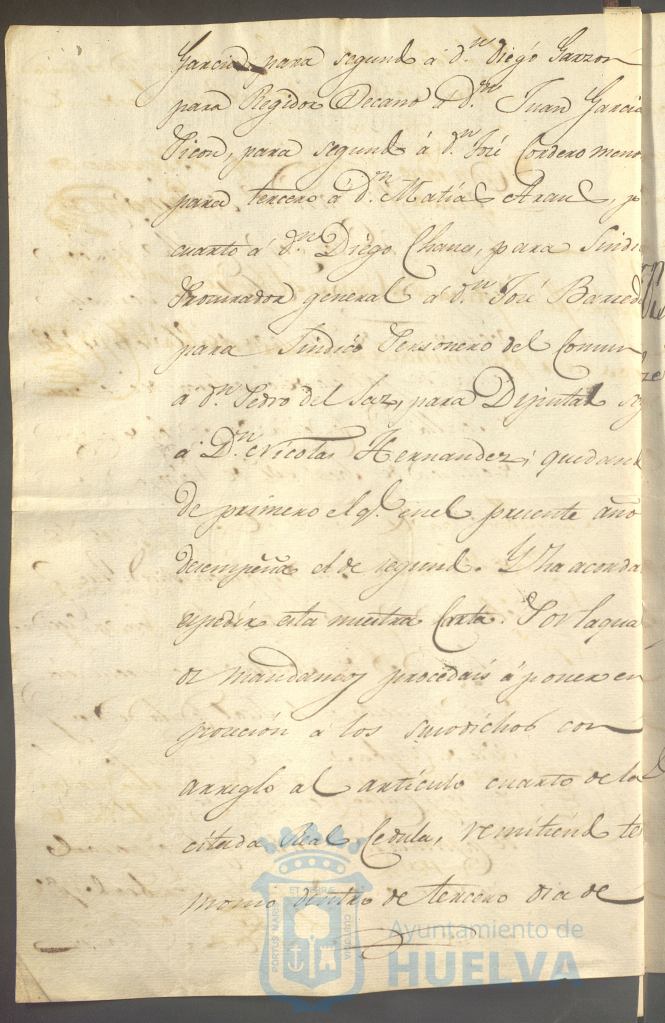 Garcia, para segund á dn Diego Garzon
para Regidor Decano á Dn Juan Garcia
Picon, para segund á dn José Cordero meno
para tercero á Dn Matías Arau, p
cuarto á dn Diego Chaves, para Sindi
Procurador general á dn José Barred
para Sindico Personero del Comun
a dn Pedro del Saz, para Diputad seg
á Dn Nicolas Hernandez, quedand
de primero el qe en el presente año
desempeña el de segund. Y ha acorda
expedir esta nuestra Carta. Por la qua
os mandamos procedais á poner en
posesión á los susodichos con
arreglo al artículo cuarto de la
citada Real Cedula, remitiend tes
monio dentro de tercero dia de
PORTUS MARIS ET TERRE CUSTODIA
Ayuntamiento de
HUELVA